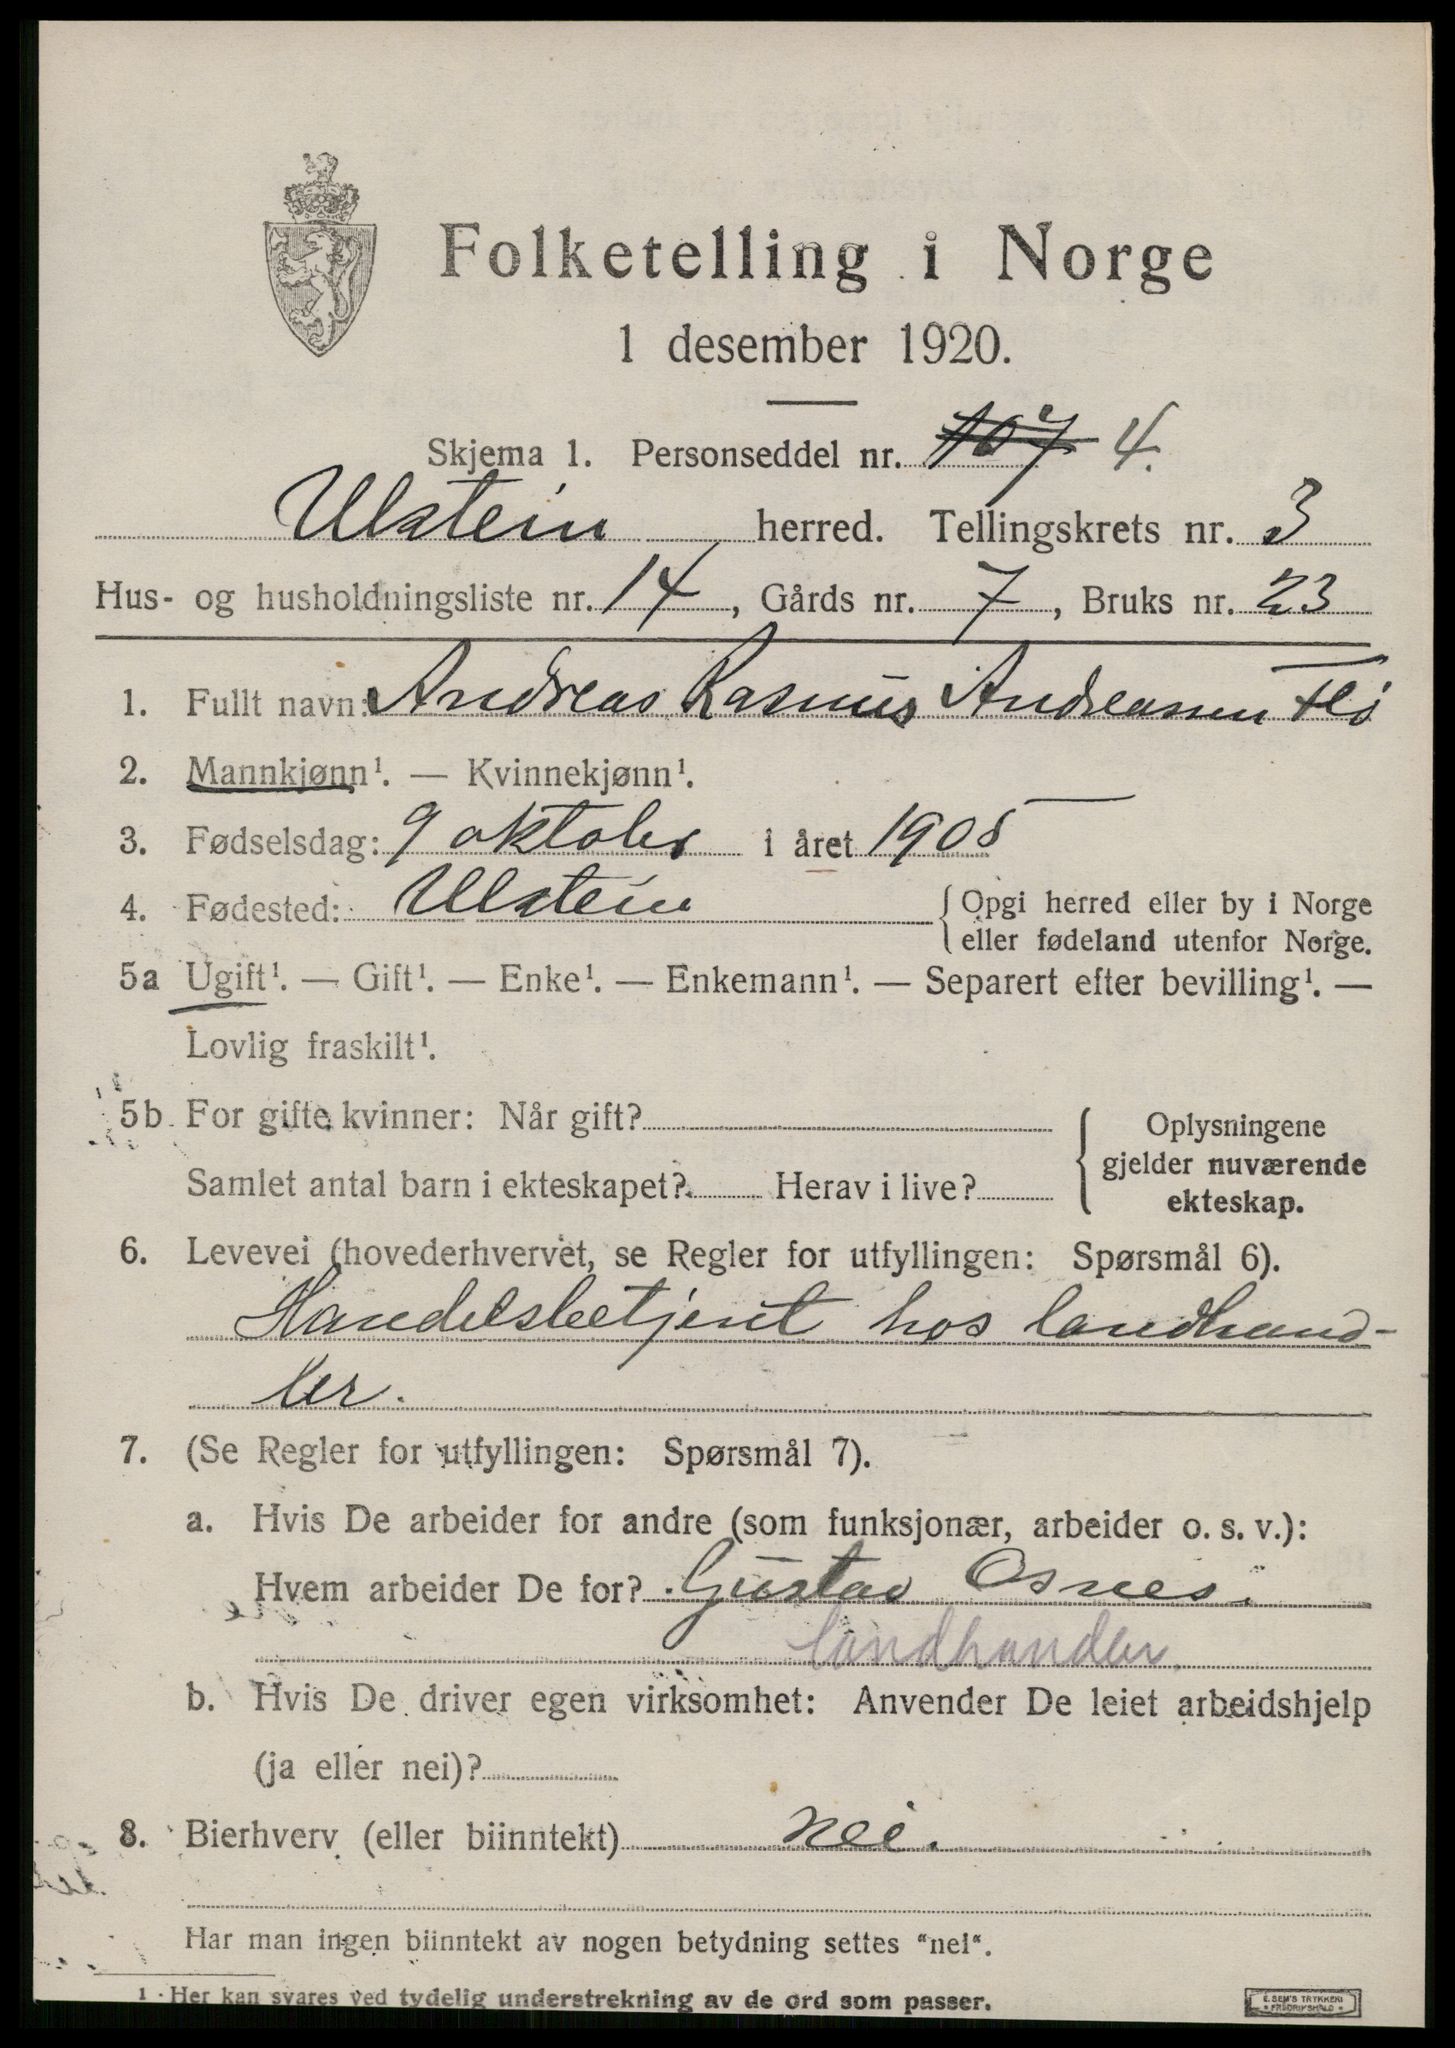 Folketelling i Norge
1 desember 1920.
Skjema 1. Personseddel nr. 107 4.
Ulstein herred. Tellingskrets nr. 3
Hus- og husholdningsliste nr. 14, Gårds nr. 7, Bruks nr. 23
1. Fullt navn: Andreas Rasmus Andreassen Flø
2. Mannkjønn¹. — Kvinnekjønn¹.
3. Fødselsdag: 9 oktober i året 1905
4. Fødested: Ulstein { Opgi herred eller by i Norge
eller fødeland utenfor Norge.
5a Ugift¹. — Gift¹. — Enke¹. — Enkemann¹. — Separert efter bevilling¹. —
Lovlig fraskilt¹.
5b For gifte kvinner: Når gift?
Samlet antal barn i ekteskapet? Herav i live?
Oplysningene
gjelder nuværende
ekteskap.
6. Levevei (hovederhvervet, se Regler for utfyllingen: Spørsmål 6).
Handelsbetjent hos landhand-
ler.
7. (Se Regler for utfyllingen: Spørsmål 7).
a. Hvis De arbeider for andre (som funksjonær, arbeider o. s. v.):
Hvem arbeider De for? Gustav Osnes.
landhandler.
b. Hvis De driver egen virksomhet: Anvender De leiet arbeidshjelp
(ja eller nei)?
8. Bierhverv (eller biinntekt) nei.
Har man ingen biinntekt av nogen betydning settes "nei".
1 Her kan svares ved tydelig understrekning av de ord som passer.
E. SEM'S TRYKKERI
FREDRIKSHALD